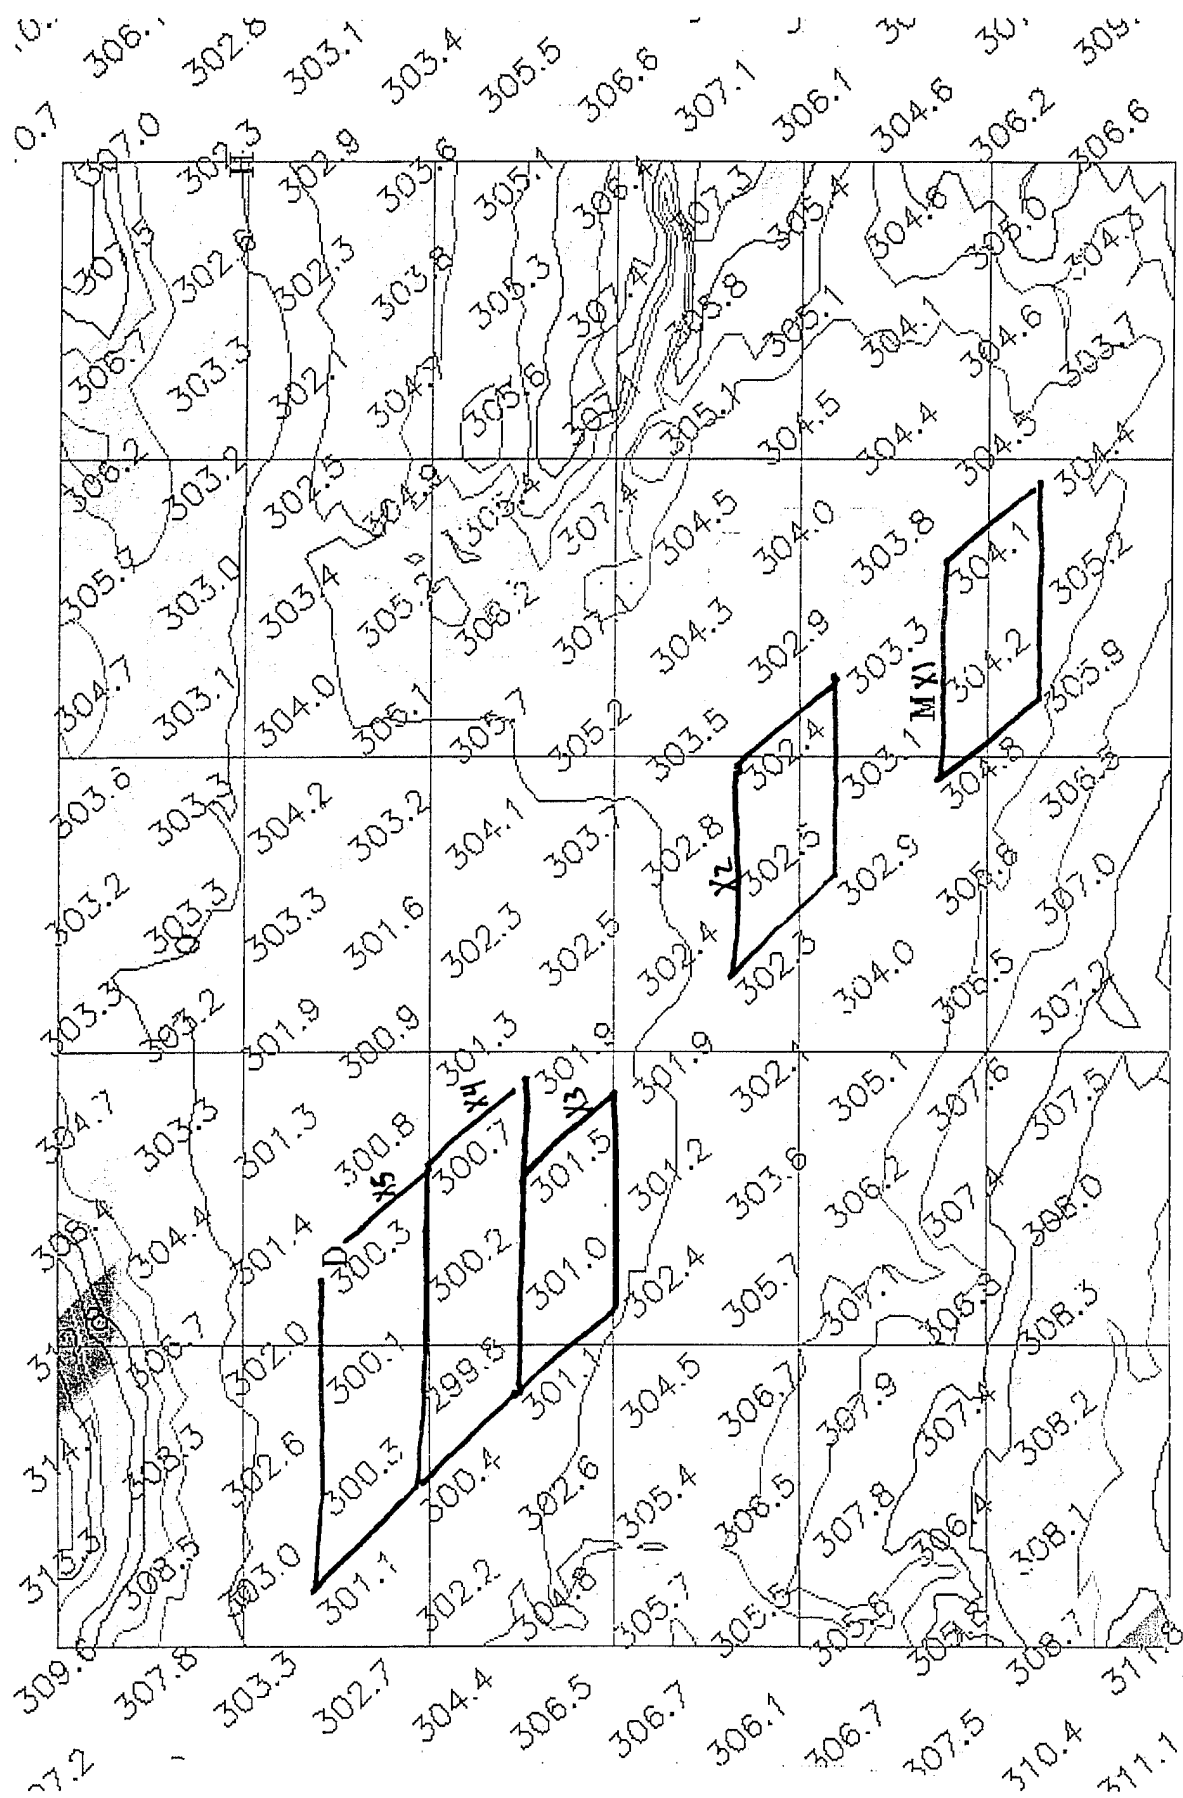 306.1 302.8 303.1 303.4 305.5 306.6 307.1 306.1 304.6 306.2 306.6
307.0 302.3 302.9 303.6 305.1 306.4 305.4 304.6 305.0 304.3
302.6 302.3 303.8 305.3 307.4 305.8 305.1 304.1 304.6 303.7
306.7 303.3 302.7 305.6 305.1 304.5 304.4 304.5 304.4
306.2 303.2 302.5 304.9 305.4 307.4 304.5 304.0 303.8 304.1 305.2
303.0 303.4 305.2 308.2 307.1 304.3 302.9 303.3 304.2 305.9
304.7 303.1 304.0 305.1 305.7 305.2 303.5 302.4 303.1 304.8
M X1
303.6 303.3 304.2 303.2 304.1 302.8 302.5 302.9
X2
303.2 303.3 303.3 301.6 302.3 302.5 302.4 302.3 304.0 307.0
303.3 303.2 301.9 300.9 301.3 301.9 301.9 302.1 305.1 307.6 307.2
X4
X3
304.7 303.3 301.3 300.8 300.7 301.5 301.2 303.6 306.2 307.4 307.5
X5
304.4 301.4 D 300.3 300.2 301.0 302.4 305.7 307.1
306.7 302.0 300.1 299.8 301.1 304.5 306.7 307.9 307.4 308.3
308.3 302.6 300.3 300.4 302.6 305.4 306.5 307.8 306.4 308.2
313.3 308.5 303.0 301.1 302.2 304.8 305.7 305.5 308.1
309.6 307.8 303.3 302.7 304.4 306.5 306.7 306.1 306.7 307.5 308.7
310.4 311.1 311.8